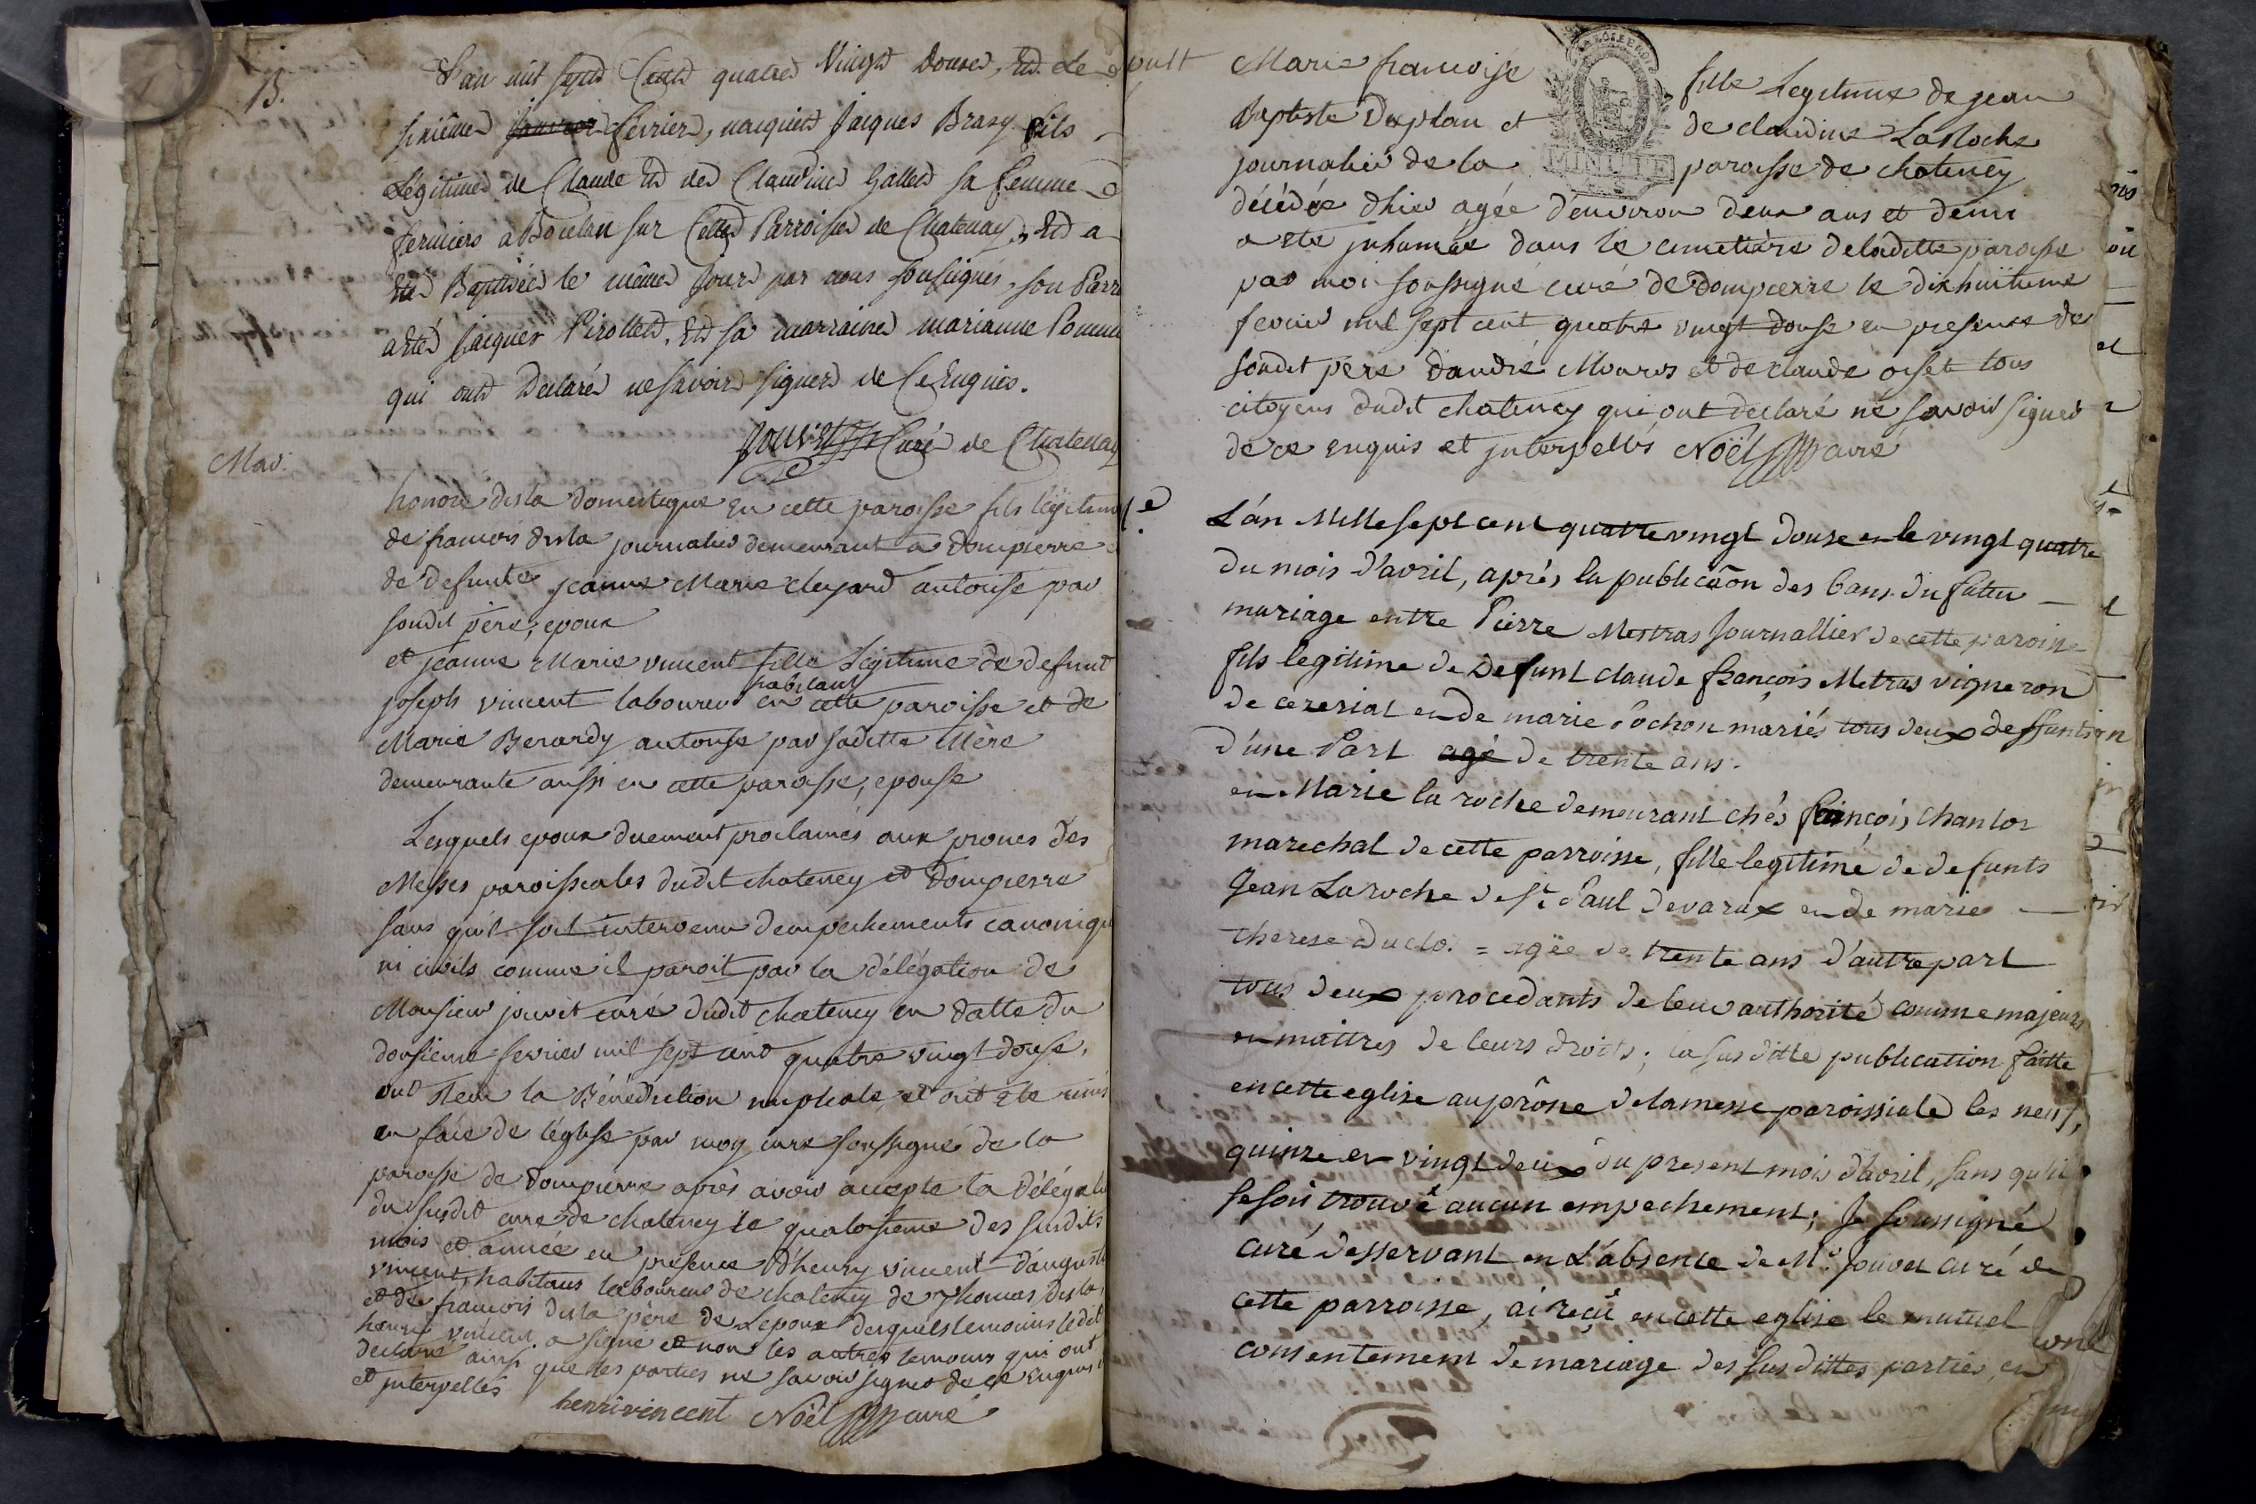 B.
L'an mil sept Cent quatre Vingt Douze, Et Le
sixième janvier fevrier, naquit Jacques Brasy fils
Légitime de Claude Et de Claudine Gallet sa femme
fermiers a Boulan sur Cette Parroisse de Chatenay, Et a
Eté Baptisé le même Jour par nous soussignés, son Parr
a été Jacques Pirollet, Et sa marraine marianne Pomme
qui ont Déclaré ne savoir signer de Ce Enquis.
Jouvet Curé de Chatenay
Mar.
honoré disla domestique en cette paroisse fils legitime
de francois disla journalier demeurant a dompierre
de defunte jeanne Marie cleyard autorisé par
sondit pere, epoux
et jeanne Marie vincent fille Legitime de defunt
joseph vincent laboureur habitant en cette paroisse et de
Marie Berardy autorise par saditte Mère
demeurante aussi en cette paroisse, epouse
Lesquels epoux duement proclamés aux prones des
Messes paroissiales dudit chateney et Dompierre
sans qu'il soit intervenu d'empechements canonique
ni civils comme il paroit par la délégation de
Monsieur jouvet curé dudit chateney en datte du
dousieme fevrier mil sept cent quatre vingt douse,
ont Reçu la Bénédiction nuptiale, et ont été unis
en face de l'églisse par moy curé soussigné de la
paroisse de Dompierre après avoir accepte la Délégat
du susdit curé de chateney le quatorsieme des susdits
mois et année en presence d'henry vincent d'auguste
vincent, habitans laboureurs de chateney de Thomas disla,
et de francois disla père de L'epoux desquels temoins ledit
henri vincent a signé et non les autres temoins qui ont
declaré ainsi que les parties ne savoir signer de ce Enquis
et interpellés
henri vincent Noël curé
pult
Marie francoise fille Legitime de jean
Baptiste Duplan et de claudine LaRoche
journalier de la paroisse de chateney
MINUTE
décédée d'hier agée d'environ deux ans et demi
a été inhumée dans le cimetière de laditte paroisse
par moi soussigné curé de Dompierre le dixhuitieme
fevrier mil sept cent quatre vingt douse en presence de
sondit père d'andré Mouros et de claude oiset tous
citoyens dudit chateney qui ont declaré ne savoir signer
de ce enquis et interpellés Noël curé
L'an Mille sept cent quatre vingt douze et le vingt quatre
du mois d'avril, après la publicaõn des bans du futur
mariage entre Pierre Mestras Journallier de cette paroisse
fils legitime de Defunt claude françois Metras vigneron
de cezeriat et de marie Pochon mariés tous deux deffunts
d'une Part agé de trente ans.
et Marie la roche demeurant chés françois Chanlor
marechal de cette parroisse, fille legitime de defunts
Jean Laroche de St. Paul devarax et de marie
therese duclo. = agée de trente ans d'autre part
tous deux procedants de leur authorité comme majeurs
et maitres de leurs droits; la sus ditte publication faitte
en cette eglise au prône de la messe paroissiale les neuf,
quinze et vingt deux du present mois d'avril, sans qu'il
se soit trouvé aucun empechement; Je soussigné
curé desservant en L'absence de Mr. Jouvet curé de
cette parroisse, ai reçû en cette eglise le mutuel
consentement de mariage des sus dittes parties, et